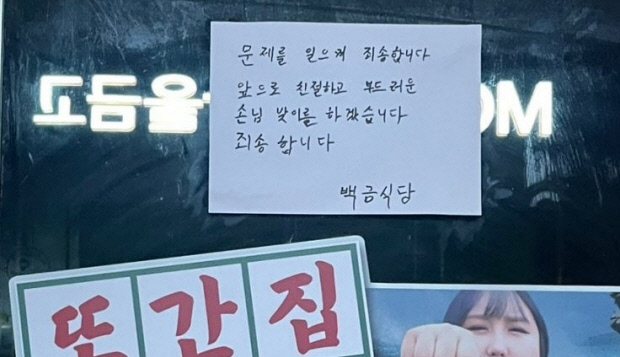 문제를 일으켜 죄송합니다
앞으로 친절하고 부드러운
손님 맞이를 하겠습니다
죄송 합니다
백금식당
또간집